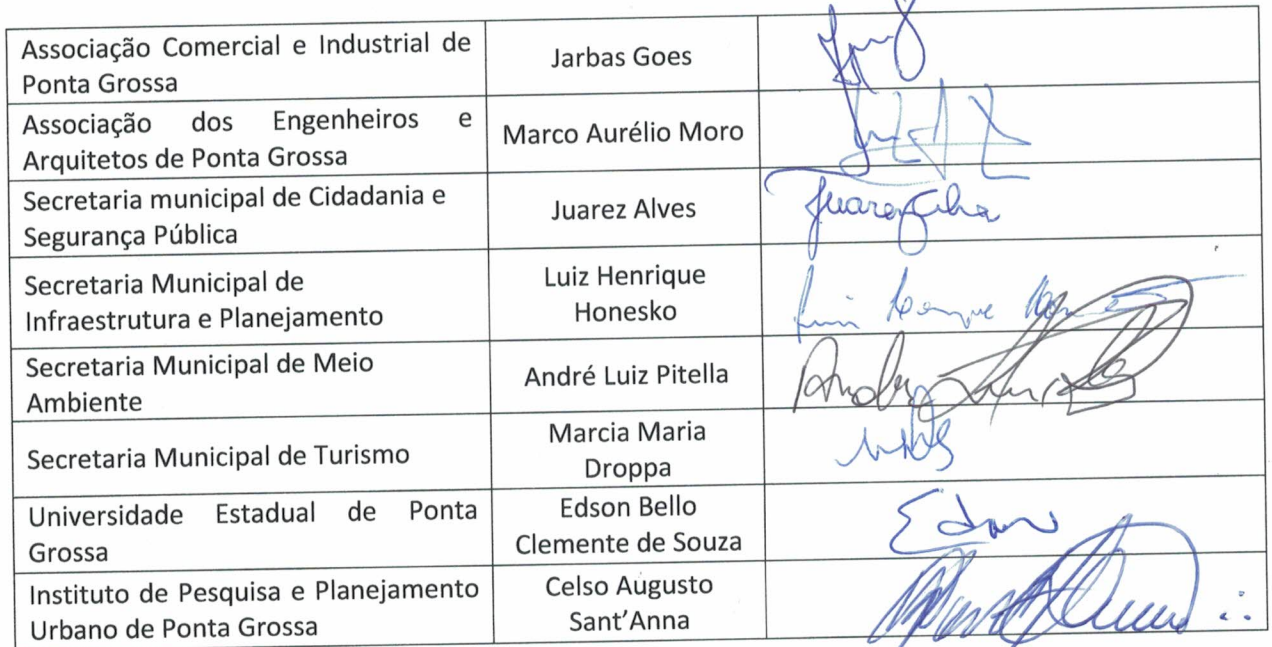 Associação Comercial e Industrial de
Ponta Grossa
Jarbas Goes
Associação dos Engenheiros e
Arquitetos de Ponta Grossa
Marco Aurélio Moro
Secretaria municipal de Cidadania e
Segurança Pública
Juarez Alves
Secretaria Municipal de
Infraestrutura e Planejamento
Luiz Henrique
Honesko
Secretaria Municipal de Meio
Ambiente
André Luiz Pitella
Secretaria Municipal de Turismo
Marcia Maria
Droppa
Universidade Estadual de Ponta
Grossa
Edson Bello
Clemente de Souza
Edson
Instituto de Pesquisa e Planejamento
Urbano de Ponta Grossa
Celso Augusto
Sant'Anna